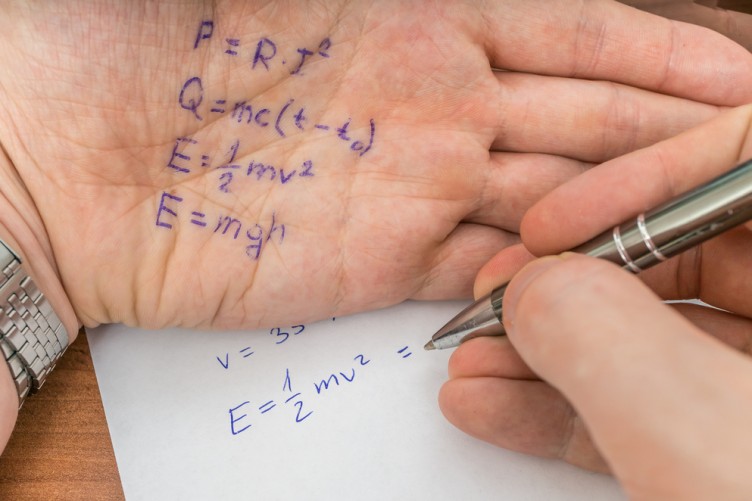 P = R · I²
Q = mc(t - t₀)
E = ½ mv²
E = mgh
v = 35
E = ½ mv² =